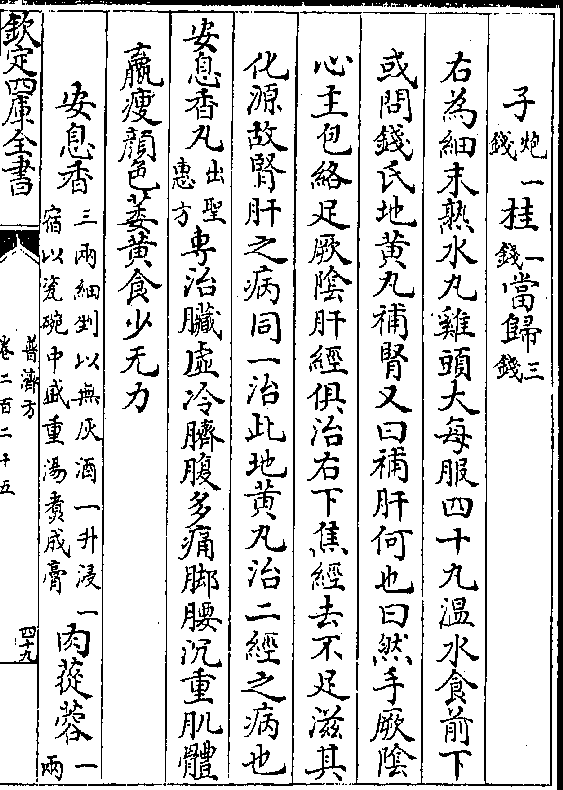 子炮一錢桂一錢當歸三錢
右為細末熟水丸雞頭大每服四十九温水食前下
或問錢氏地黄丸補腎又曰補肝何也曰然手厥隂
心主包絡足厥隂肝經俱治右下焦經去不足滋其
化源故腎肝之病同一治此地黄丸治二經之病也
安息香丸出聖惠方專治臟虚冷臍腹多痛脚腰沉重肌體
羸瘦顔色萎黄食少无力
安息香三兩細剉以無灰酒一升浸一宿以瓷碗中盛重湯煮成膏肉蓯蓉一兩
欽定四庫全書
普濟方
卷二百二十五
四十九